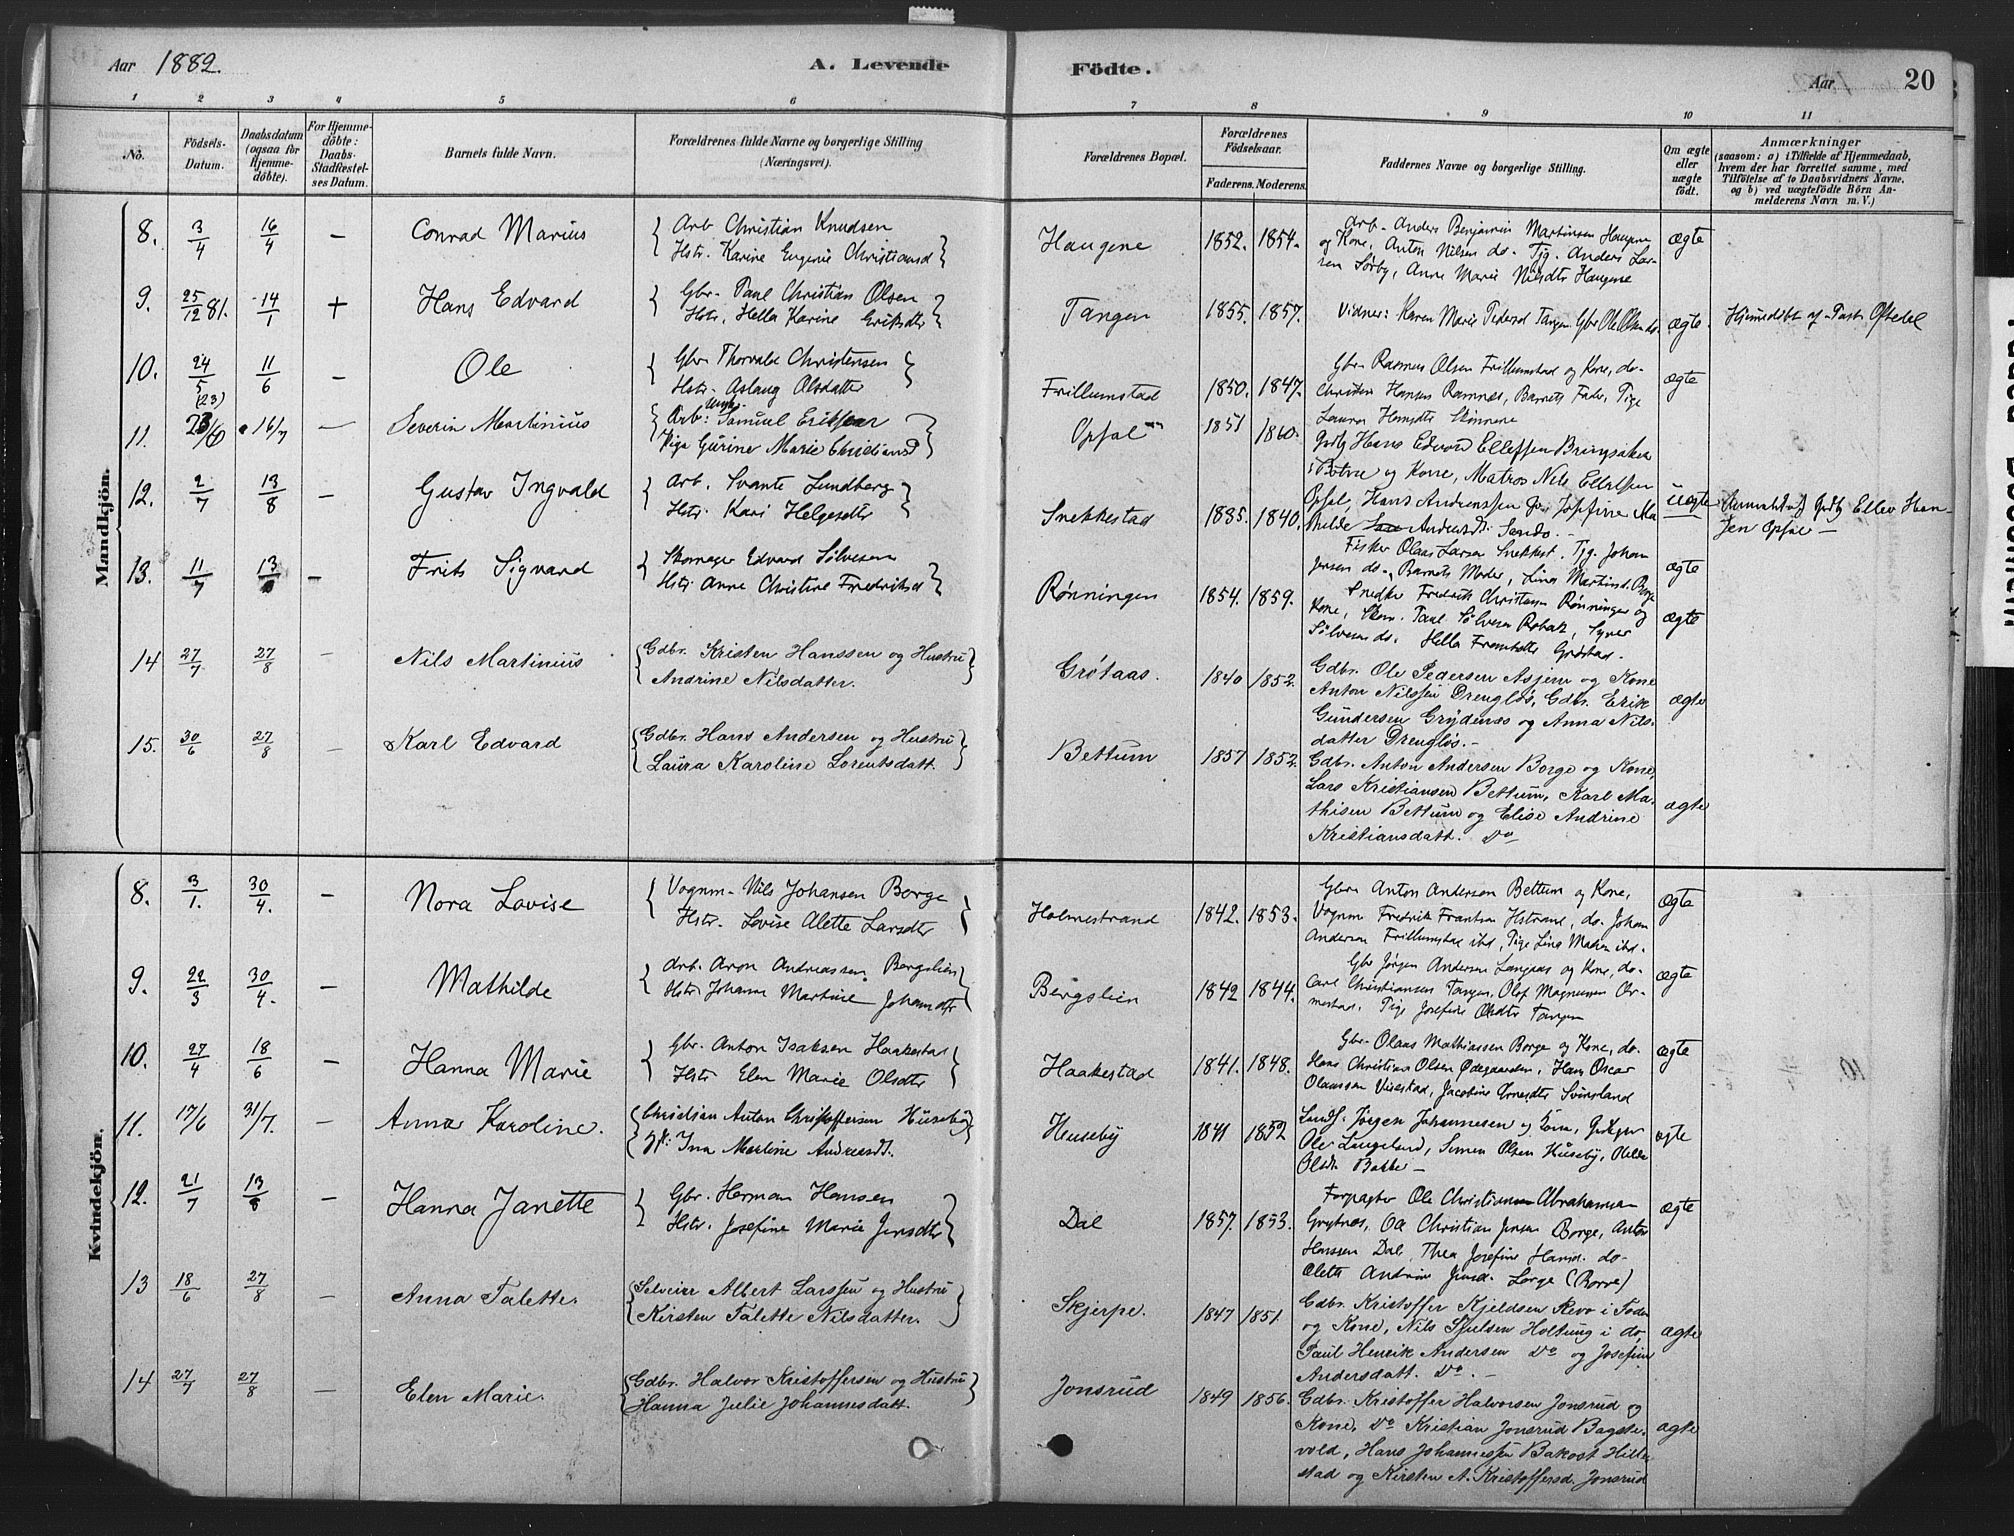 Aar 1882.
A. Levende
Födte.
Aar
20
1 2 3 4 5 6
7 8 9 10 11
No.
Födsels-
Datum.
Daabsdatum
(ogsaa for
Hjemme-
döbte).
For Hjemme-
döbte:
Daabs-
Stadfæstel-
ses Datum.
Barnets fulde Navn.
Forældrenes fulde Navne og borgerlige Stilling
(Næringsvei).
Forældrenes Bopæl.
Forældrenes
Födselsaar.
Faderens. Moderens.
Faddernes Navne og borgerlige Stilling.
Om ægte
eller
uægte
födt.
Anmærkninger
(saasom: a) i Tilfælde af Hjemmedaab,
hvem der har forrettet samme, med
Tilföielse af to Daabsvidners Navne,
og b) ved uægtefödte Börn An-
melderens Navn m. V.)
Mandkjön.
8. 3/4 16/4 — Conrad Marius
Arb. Christian Knudsen
Hstr. Karine Eugenie Christiansd
Haugene 1852. 1854.
Arb. Anders Benjamin Martinsen Haugene
og Kone, Anton Nilsen do. Tjg. Anders Lar-
sen Sørby, Anne Marie Nilsdtr Haugene
ægte
9. 25/12 81. 14/1 + Hans Edvard
Gbr. Paul Christian Olsen
Hstr. Hella Karine Eriksdtr
Tangen 1855. 1857.
Vidner: Karen Marie Pedersd Tangen Gbr Ole Olsen do.
ægte. Hjemmedøbt af Past. Oftedal
10. 24/5 11/6 — Ole
(23)
Gbr Thorvald Christensen
Hstr. Aslaug Olsdatter
Frillumstad 1850. 1847.
Gbr. Rasmus Olsen Frillumstad og Kone, do.
Christian Hansen Ramnes, Barnets Fader, Pige
Laura Hansdtr
ægte
11. 23/6 16/7 — Severin Martinius
Arb: Ungk. Samuel Eriksen
Pige Gurine Marie Christiansd
Opsal 1851 1860.
Gdbr Hans Edvard Ellefsen Bringsaker
i Botne og Kone, Matros Nils Ellefsen
Opsal, Hans Andreassen do. Josefine Ma-
thilde Andersd: Sando. —
uægte Anmeldt af Gdbr Ellev Han-
sen Opsal —
12. 2/7 13/8 — Gustav Ingvald
Arb. Svante Lundberg
Hstr. Kari Helgesdtr
Snekkestad 1835. 1840.
Fisker Olaus Larsen Snekkest. Tjg. Johan
Jensen do., Barnets Moder, Lina Martinsd. Borge
ægte
13. 11/7 13/8 — Frits Sigvard
Skomager Edvard Sølvesen
Hstr. Anne Christine Fredriksd
Rønningen 1854. 1859.
Snedker Fredrik Christensen Rønningen og
Kone, Skom. Paul Sølvesen Robak, Syver
Sølvesen do. Hella
ægte
14 27/7 27/8 — Nils Martinius
Gdbr. Kristen Hanssen og Hustru
Andrine Nilsdatter.
Grøtaas. 1840 1852.
Gdbr. Ole Pedersen Asjem og Kone
Anton Nilssen Drengløs, Gdbr. Erik
Gundersen Grydenæs og Anna Nils-
datter Drengløs.-
ægte
15. 30/6 27/8 — Karl Edvard
Gdbr. Hans Andersen og Hustru
Laura Karoline Lorentsdatt.
Bettum 1857 1852.
Gdbr. Anton Andersen Borge og Kone,
Lars Kristiansen Bettum, Karl Ma-
thisen Bettum og Elise Andrine
Kristiansdatt. Do
ægte
Kvindekjön.
8. 3/1. 30/4. — Nora Lovise
Vognm. Nils Johansen Borge
Hstr. Lovise Alette Larsdtr
Holmestrand 1842. 1853.
Gbr. Anton Andersen Bettum og Kone,
Vognm Fredrik Frantsen Hstrand, do. Johan
Andersen Frillumstad ibd, Pige Lina Madsen ibd.
ægte
9. 22/3 30/4. — Mathilde
Arb. Aron Andreassen Bergslien
Hstr Johanne Martine Johansdtr
Bergslien 1842 1844.
Gbr Jørgen Andersen Langaas og Kone, do.
Carl Christiansen Tangen, Olof Magnussen Or-
mestad, Pige Josefine Olsdtr Tangen
ægte
10. 27/4 18/6 — Hanna Marie
Gbr. Anton Isaksen Haakestad
Hstr Elen Marie Olsdtr
Haakestad 1841. 1848.
Gbr. Olaus Mathiassen Borge og Kone, do.
Hans Christian Olsen Ødegaarden, Hans Oscar
Olaussen Virkstad, Jacobine Arnesdtr Svinsland
ægte
11. 17/6 31/7. — Anna Karoline.
Christian Anton Christoffersen Huseby
H: Ina Martine Andreasdt.
Huseby 1841 1852
Landh. Jørgen Johannesen og Kone, Gdbr
Ole Langeland, Simen Olsen Huseby, Hilda
Olsdtr Bakke —
ægte
12. 21/7 13/8 — Hanna Janette
Gbr. Herman Hansen
Hstr. Josefine Marie Jensdtr
Dal 1857. 1853.
Forpagter Ole Christian Abrahamsen
Grytnes, Ole Christian Jensen Borge, Anton
Hanssen Dal, Thea Josefine Hansd. do-
Olette Andrine Jensd. Lorge (Borre)
ægte
13 18/6 27/8 — Anna Talette.
Selveier Albert Larssen og Hustru
Kirsten Talette Nilsdatter.
Skjerpe. 1847 1851.
Gdbr. Kristoffer Kjeldsen Revo i
og Kone, Nils Holtung i do,
Paul Henrik Andersen Do og Josefine
Andersdatt. Do. -
ægte
14 27/7 27/8 — Elen Marie.
Gdbr. Halvor Kristoffersen og Hustru
Hanna Julie Johannesdatt.
Jonsrud 1849 1856.
Gdbr. Kristoffer Halvorsen Jonsrud og
Kone, Do Kristian Jonsrud Bagste-
vold, Hans Johannessen Bakost Hille-
stad og Kirsten A. Kristoffersd. Jonsrud
ægte